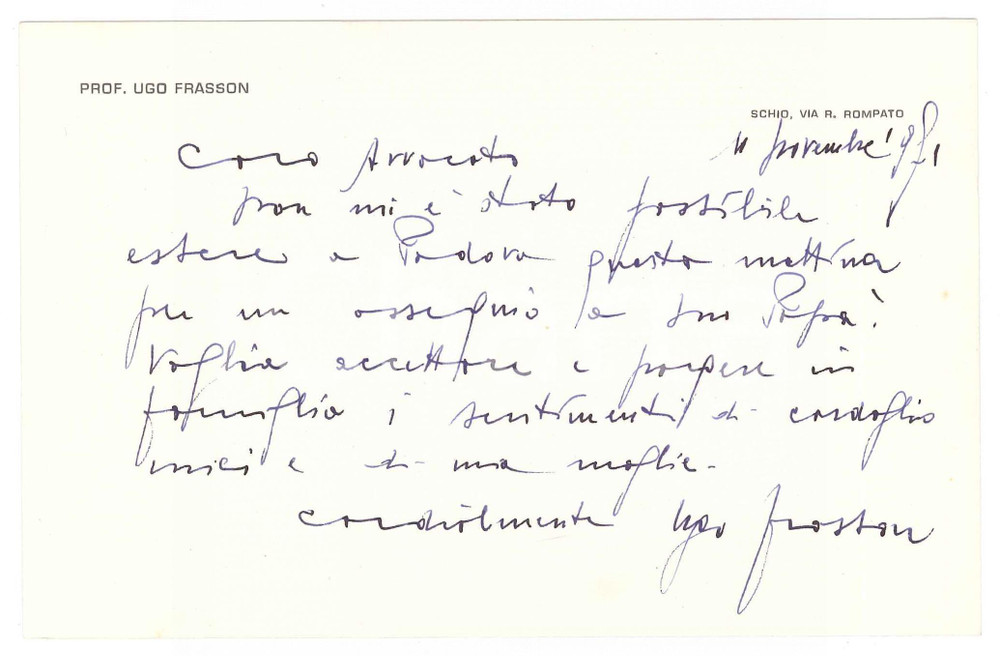 PROF. UGO FRASSON
SCHIO, VIA R. ROMPATO
novembre
Caro Avvocato
non mi è stato possibile
essere a Padova questa mattina
per un ossequio a Suo Papà.
Voglia accettare e porgere in
famiglia i sentimenti di cordoglio
miei e di mia moglie.
Cordialmente Ugo Frasson